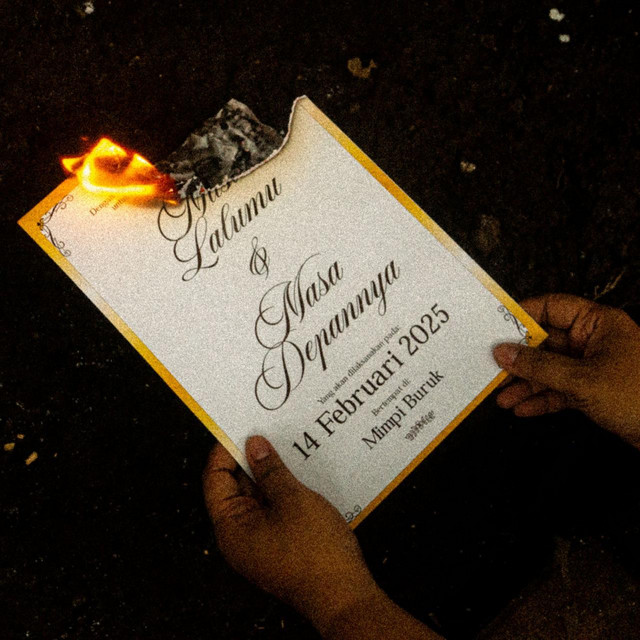 Lalumu
&
Masa
Depannya
Yang akan dilaksanakan pada:
14 Februari 2025
Bertempat di:
Mimpi Buruk